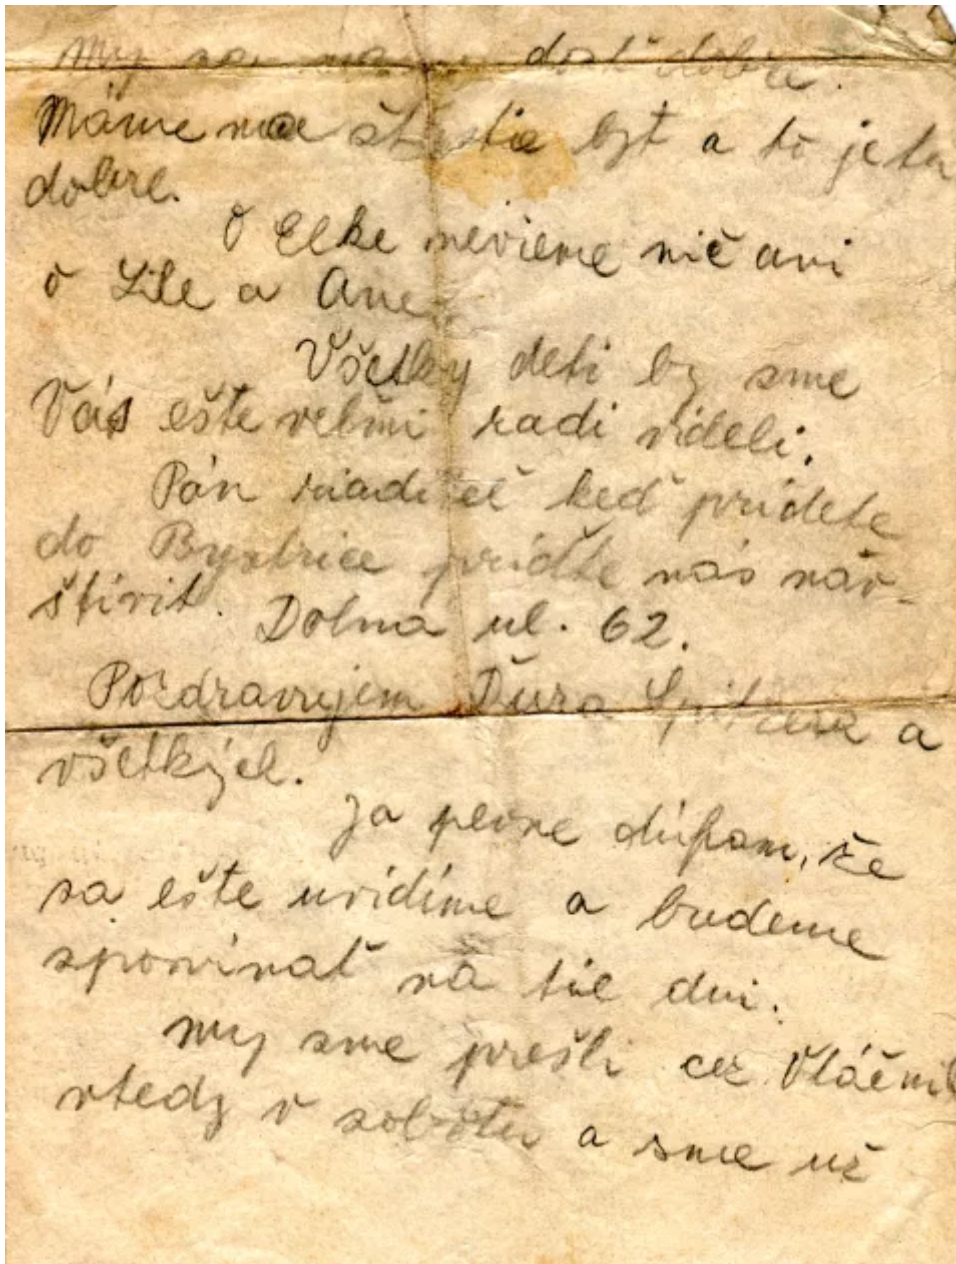 My sa máme dosť dobre.
Máme na šťastie byt a to je to
dobre.
O Elke nevieme nič ani
o Lile a Ane
Všetky deti by sme
Vás ešte veľmi radi videli.
Pán riaditeľ keď prídete
do Bystrice príďte nás náv-
štíviť. Dolná ul. 62.
Pozdravujem Ďura a
všetkých.
Ja pevne dúfam, že
sa ešte uvidíme a budeme
spomínať na tie dni.
My sme prešli cez
vtedy v sobotu a sme už